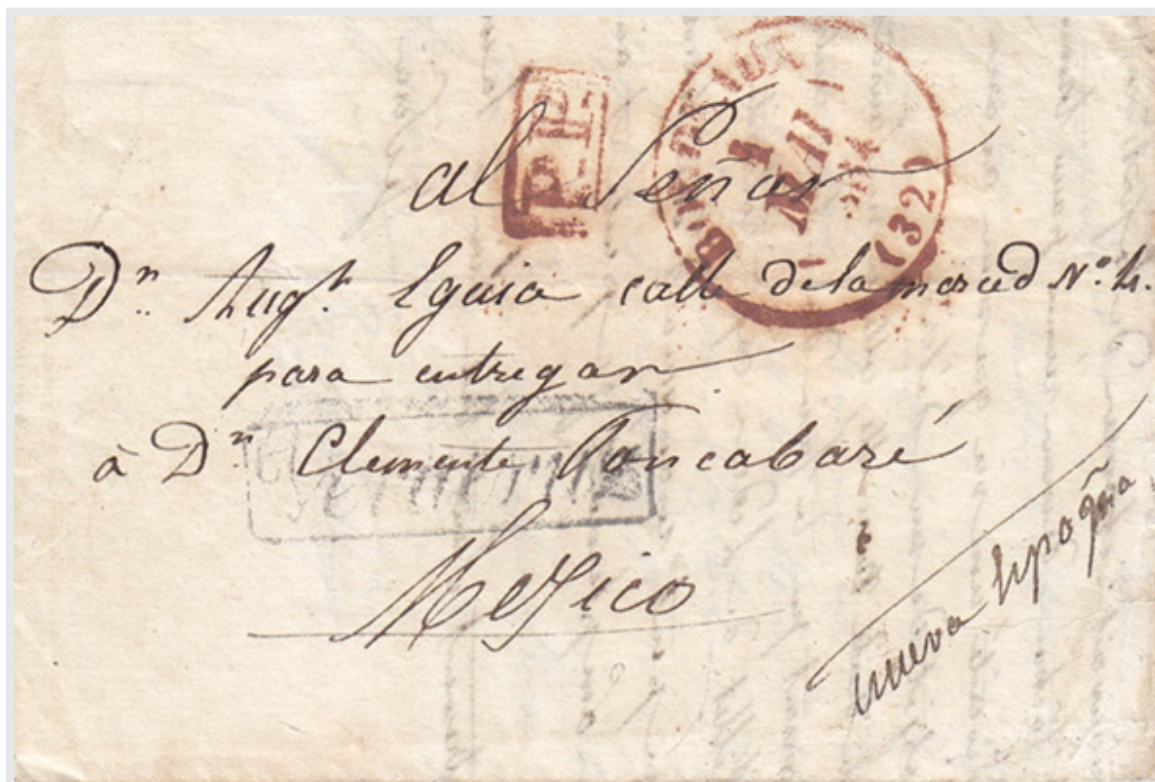 P.P.
BORDEAUX
MAI
(32)
al Señor
Dn. Augn. Eguia calle de la merced No. 4.
para entregar
à Dn. Clemente
Mexico
nueva España